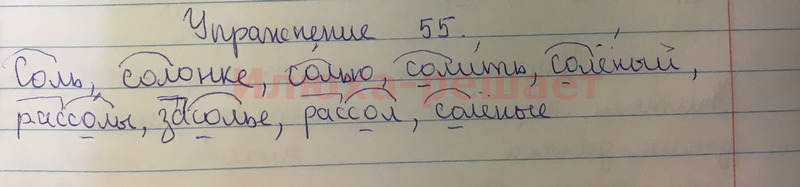 Упражнение 55.
Соль, солонке, солью, солить, солёный,
рассолы, засолье, рассол, соленые
Илюха-решает